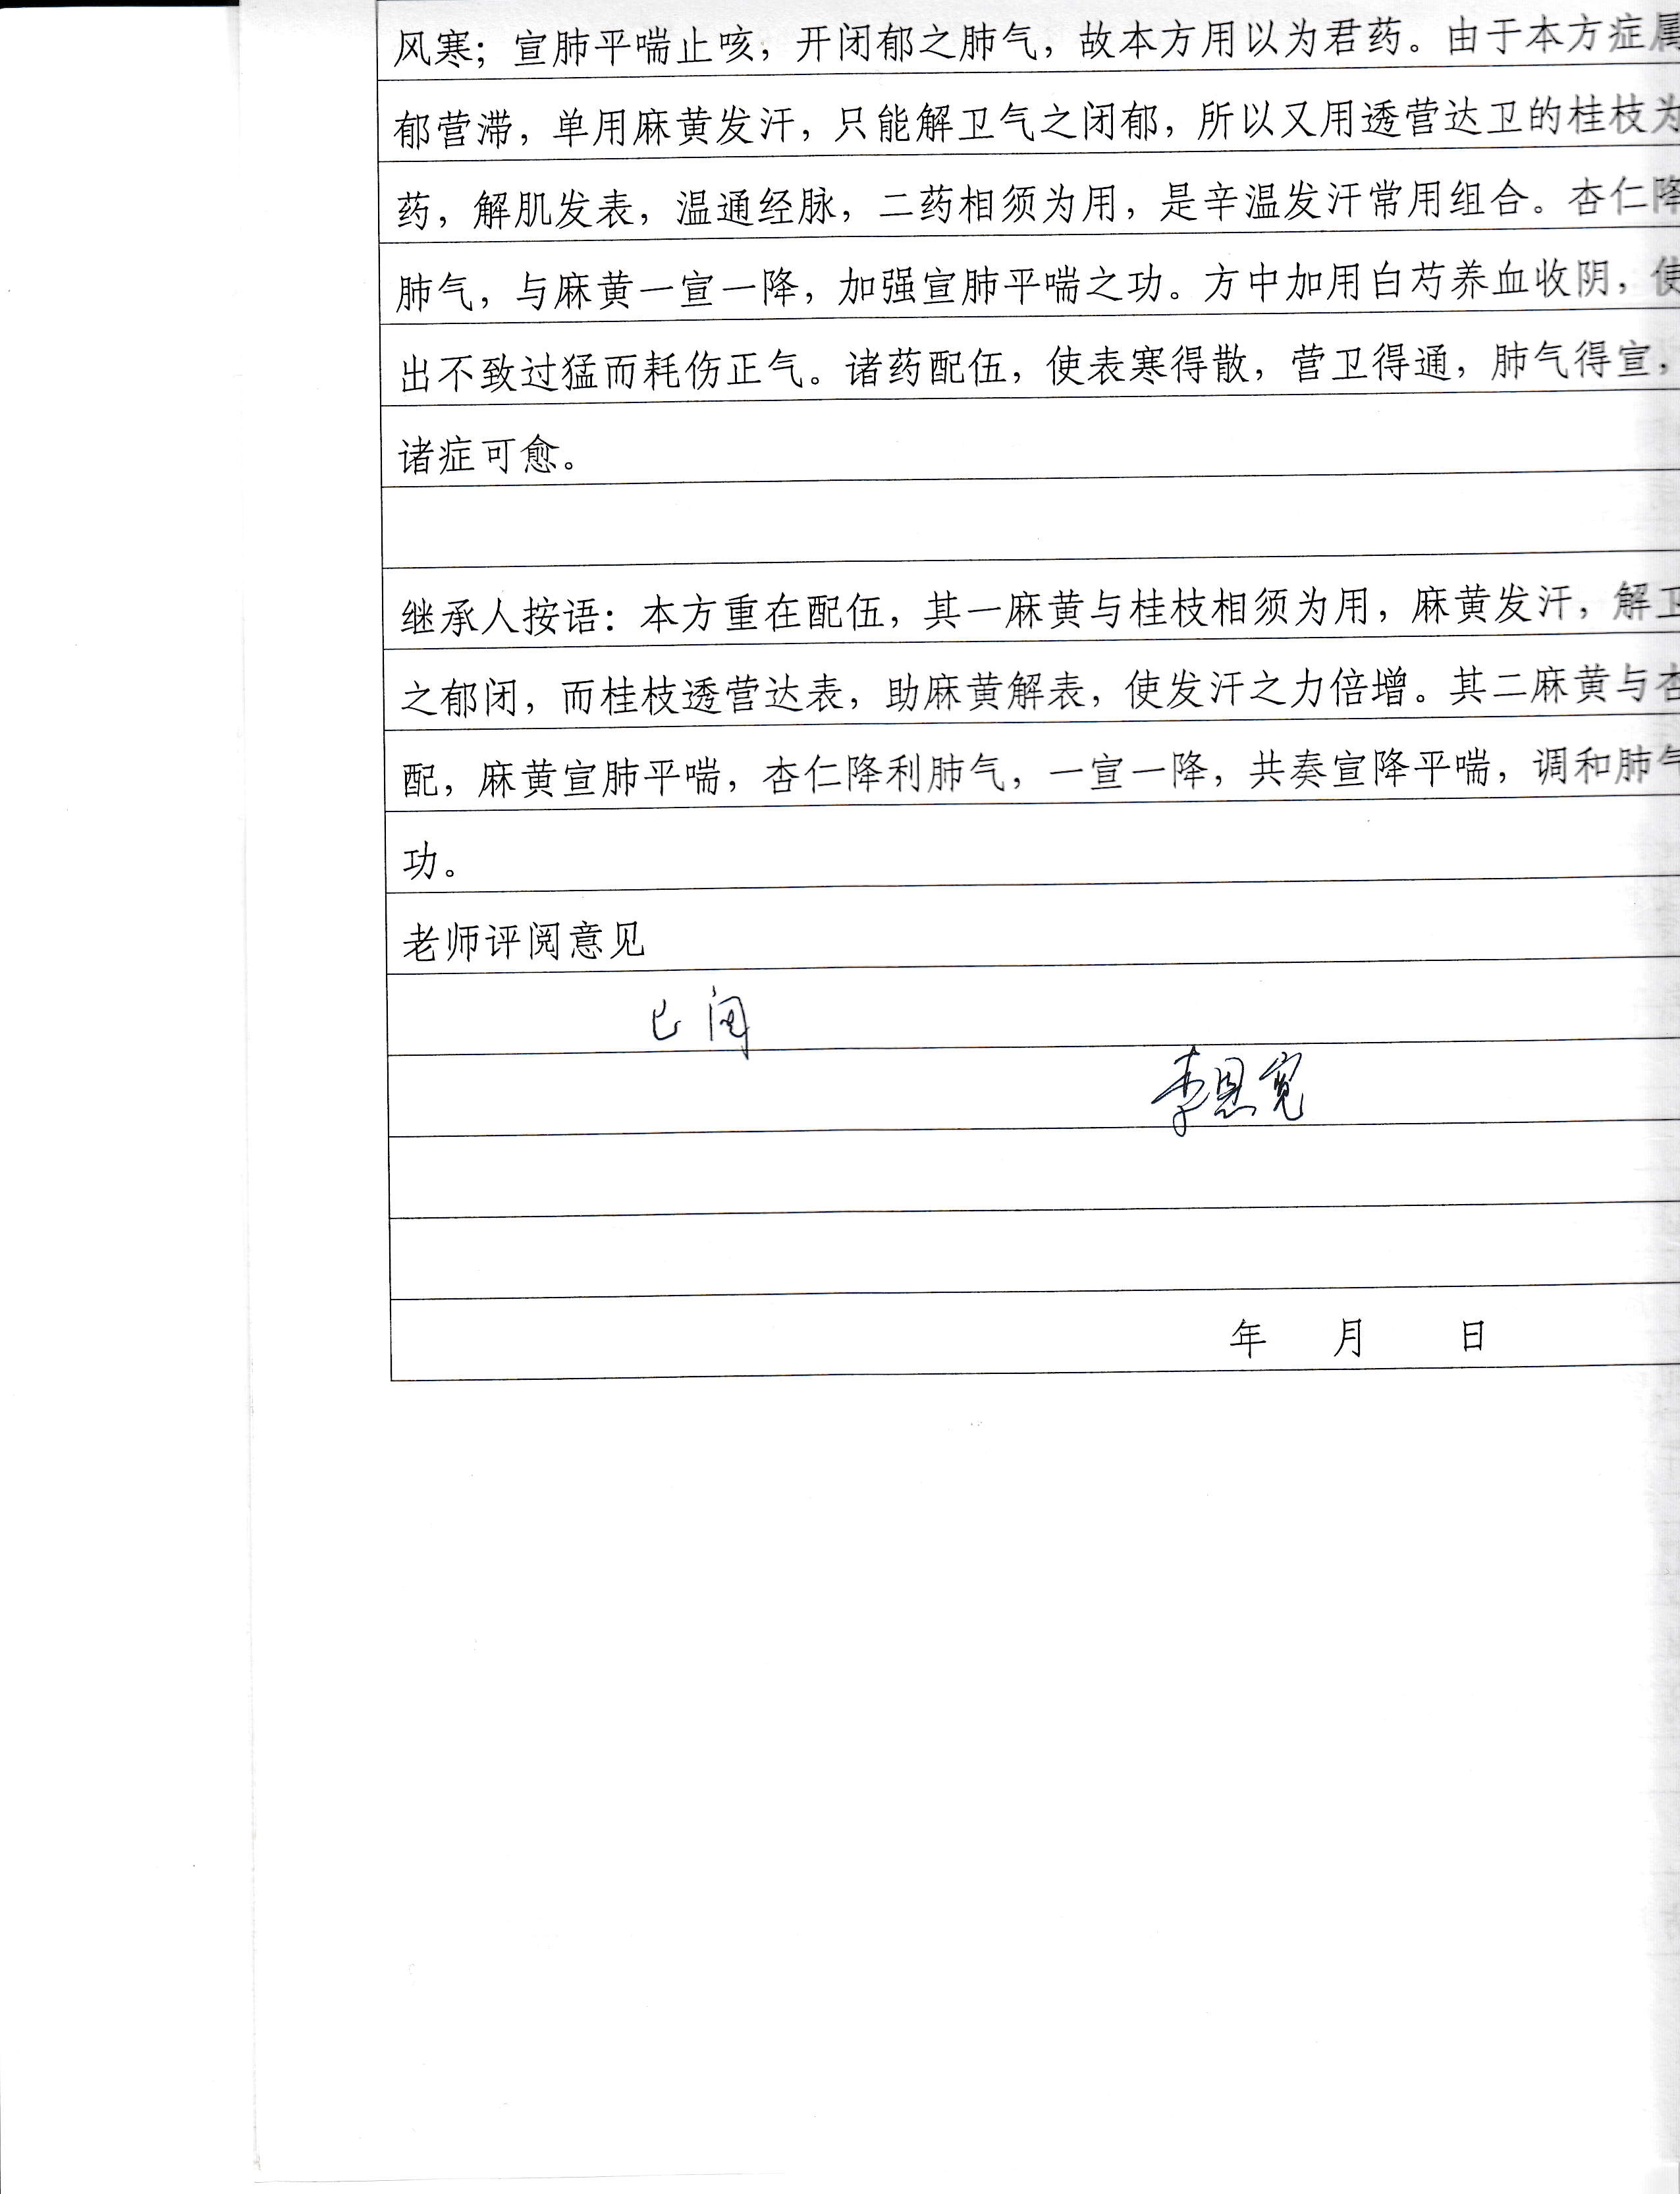 风寒；宣肺平喘止咳，开闭郁之肺气，故本方用以为君药。由于本方症属
郁营滞，单用麻黄发汗，只能解卫气之闭郁，所以又用透营达卫的桂枝为
药，解肌发表，温通经脉，二药相须为用，是辛温发汗常用组合。杏仁降
肺气，与麻黄一宣一降，加强宣肺平喘之功。方中加用白芍养血收阴，使
出不致过猛而耗伤正气。诸药配伍，使表寒得散，营卫得通，肺气得宣，
诸症可愈。
继承人按语：本方重在配伍，其一麻黄与桂枝相须为用，麻黄发汗，解卫
之郁闭，而桂枝透营达表，助麻黄解表，使发汗之力倍增。其二麻黄与杏
配，麻黄宣肺平喘，杏仁降利肺气，一宣一降，共奏宣降平喘，调和肺气
功。
老师评阅意见
已阅
李恩宽
年 月 日